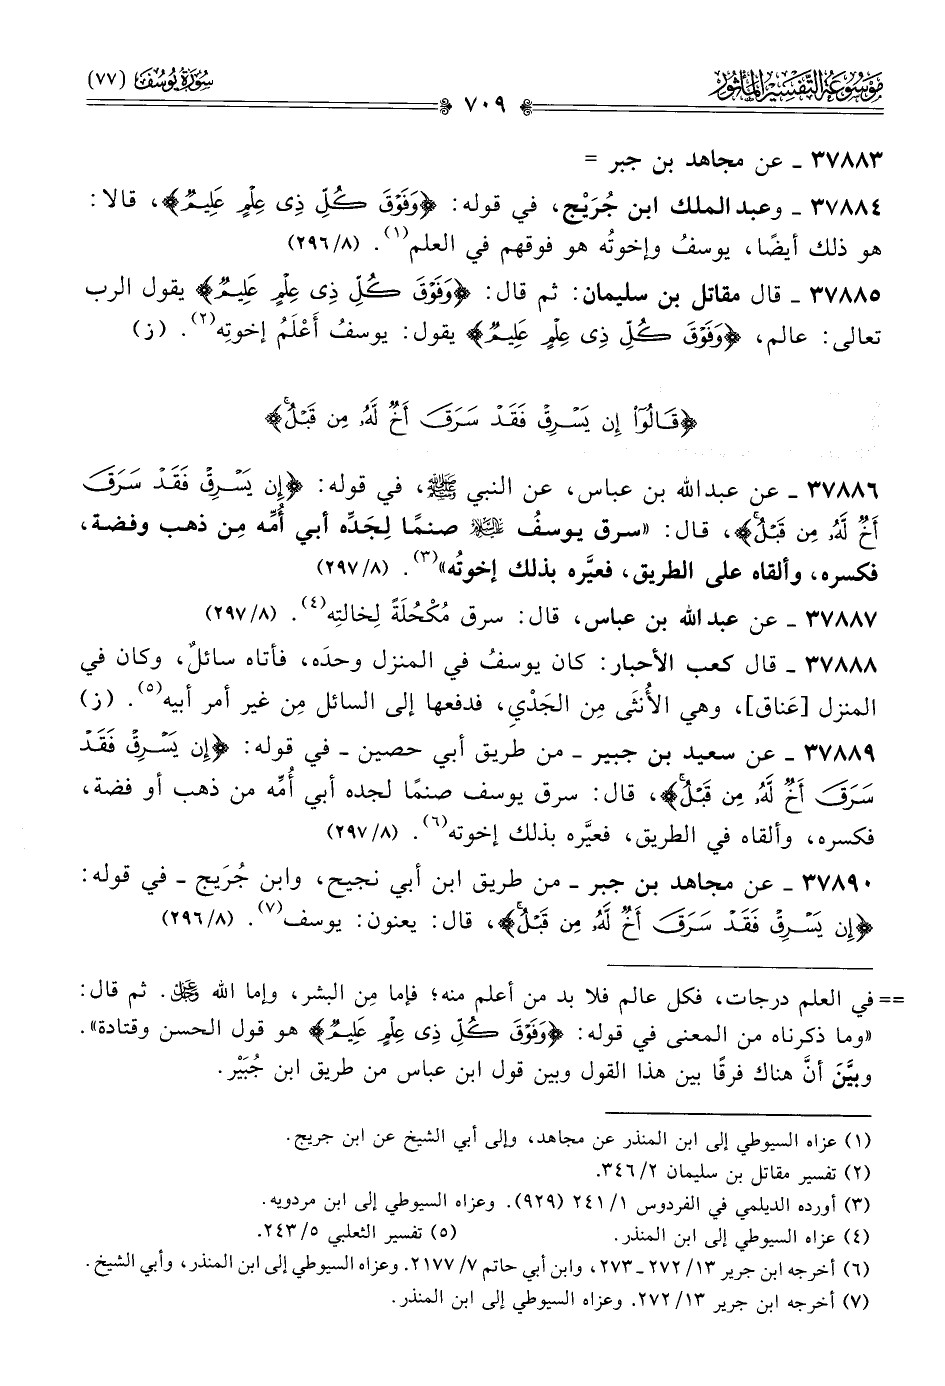 مَوْسُوعَةُ التَّفْسِيرِ المَأْثُورِ
سُورَةُ يُوسُفَ (٧٧)
٧٠٩
٣٧٨٨٣ ـ عن مجاهد بن جبر =
٣٧٨٨٤ ـ وعبد الملك ابن جُرَيْج، في قوله: ﴿وَفَوْقَ كُلِّ ذِى عِلْمٍ عَلِيمٌ﴾، قالا:
هو ذلك أيضًا، يوسفُ وإخوتُه هو فوقهم في العلم(١). (٢٩٦/٨)
٣٧٨٨٥ ـ قال مقاتل بن سليمان: ثم قال: ﴿وَفَوْقَ كُلِّ ذِى عِلْمٍ عَلِيمٌ﴾ يقول الرب
تعالى: عالم، ﴿وَفَوْقَ كُلِّ ذِى عِلْمٍ عَلِيمٌ﴾ يقول: يوسفُ أَعْلَمُ إخوتِه(٢). (ز)
﴿قَالُوٓا۟ إِن يَسْرِقْ فَقَدْ سَرَقَ أَخٌ لَّهُۥ مِن قَبْلُۚ﴾
٣٧٨٨٦ ـ عن عبد الله بن عباس، عن النبي ﷺ، في قوله: ﴿إِن يَسْرِقْ فَقَدْ سَرَقَ
أَخٌ لَّهُۥ مِن قَبْلُۚ﴾، قال: «سرق يوسفُ عليه السلام صنمًا لِجَدِّه أبي أُمِّه مِن ذهب وفضة،
فكسره، وألقاه على الطريق، فعيَّره بذلك إخوتُه»(٣). (٢٩٧/٨)
٣٧٨٨٧ ـ عن عبد الله بن عباس، قال: سرق مُكْحُلَةً لِخالتِه(٤). (٢٩٧/٨)
٣٧٨٨٨ ـ قال كعب الأحبار: كان يوسفُ في المنزل وحدَه، فأتاه سائلٌ، وكان في
المنزل [عَناق]، وهي الأُنثَى مِن الجَدْيِ، فدفعها إلى السائل مِن غير أمر أبيه(٥). (ز)
٣٧٨٨٩ ـ عن سعيد بن جبير ـ من طريق أبي حصين ـ في قوله: ﴿إِن يَسْرِقْ فَقَدْ
سَرَقَ أَخٌ لَّهُۥ مِن قَبْلُۚ﴾، قال: سرق يوسف صنمًا لجده أبي أُمِّه من ذهب أو فضة،
فكسره، وألقاه في الطريق، فعيَّره بذلك إخوته(٦). (٢٩٧/٨)
٣٧٨٩٠ ـ عن مجاهد بن جبر ـ من طريق ابن أبي نجيح، وابن جُرَيج ـ في قوله:
﴿إِن يَسْرِقْ فَقَدْ سَرَقَ أَخٌ لَّهُۥ مِن قَبْلُۚ﴾، قال: يعنون: يوسف(٧). (٢٩٦/٨)
== في العلم درجات، فكل عالم فلا بد من أعلم منه؛ فإما مِن البشر، وإما الله عز وجل. ثم قال:
«وما ذكرناه من المعنى في قوله: ﴿وَفَوْقَ كُلِّ ذِى عِلْمٍ عَلِيمٌ﴾ هو قول الحسن وقتادة».
وبيَّنَ أنَّ هناك فرقًا بين هذا القول وبين قول ابن عباس من طريق ابن جُبَيْر.
(١) عزاه السيوطي إلى ابن المنذر عن مجاهد، وإلى أبي الشيخ عن ابن جريج.
(٢) تفسير مقاتل بن سليمان ٣٤٦/٢.
(٣) أورده الديلمي في الفردوس ٢٤١/١ (٩٢٩). وعزاه السيوطي إلى ابن مردويه.
(٤) عزاه السيوطي إلى ابن المنذر. (٥) تفسير الثعلبي ٢٤٣/٥.
(٦) أخرجه ابن جرير ٢٧٢/١٣ ـ ٢٧٣، وابن أبي حاتم ٢١٧٧/٧. وعزاه السيوطي إلى ابن المنذر، وأبي الشيخ.
(٧) أخرجه ابن جرير ٢٧٢/١٣. وعزاه السيوطي إلى ابن المنذر.